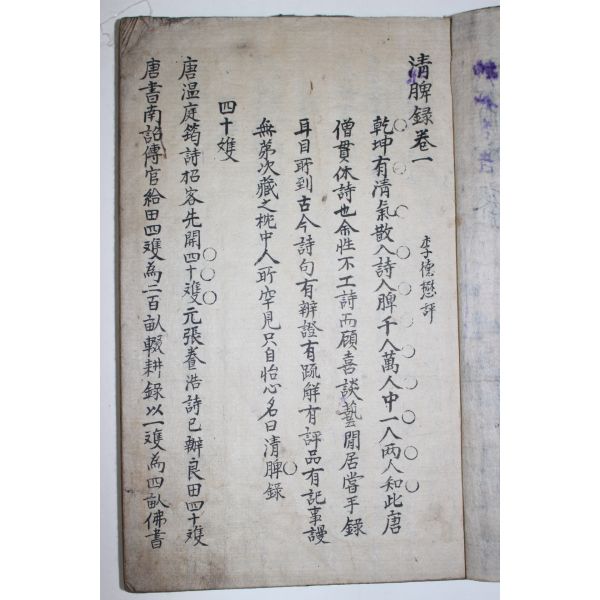 清脾錄卷一
李德懋評
乾坤有清氣散入詩人脾千人萬人中一人兩人知此唐
僧貫休詩也余性不工詩而顧喜談藝閒居嘗手錄
耳目所到古今詩句有辨證有疏解有評品有記事謾
無第次藏之枕中人所罕見只自怡心名曰清脾錄
四十雙
唐温庭筠詩招客先開四十雙元張養浩詩已辦良田四十雙
唐書南詔傳官給田四雙為二百畝輟耕錄以一雙為四畝佛書